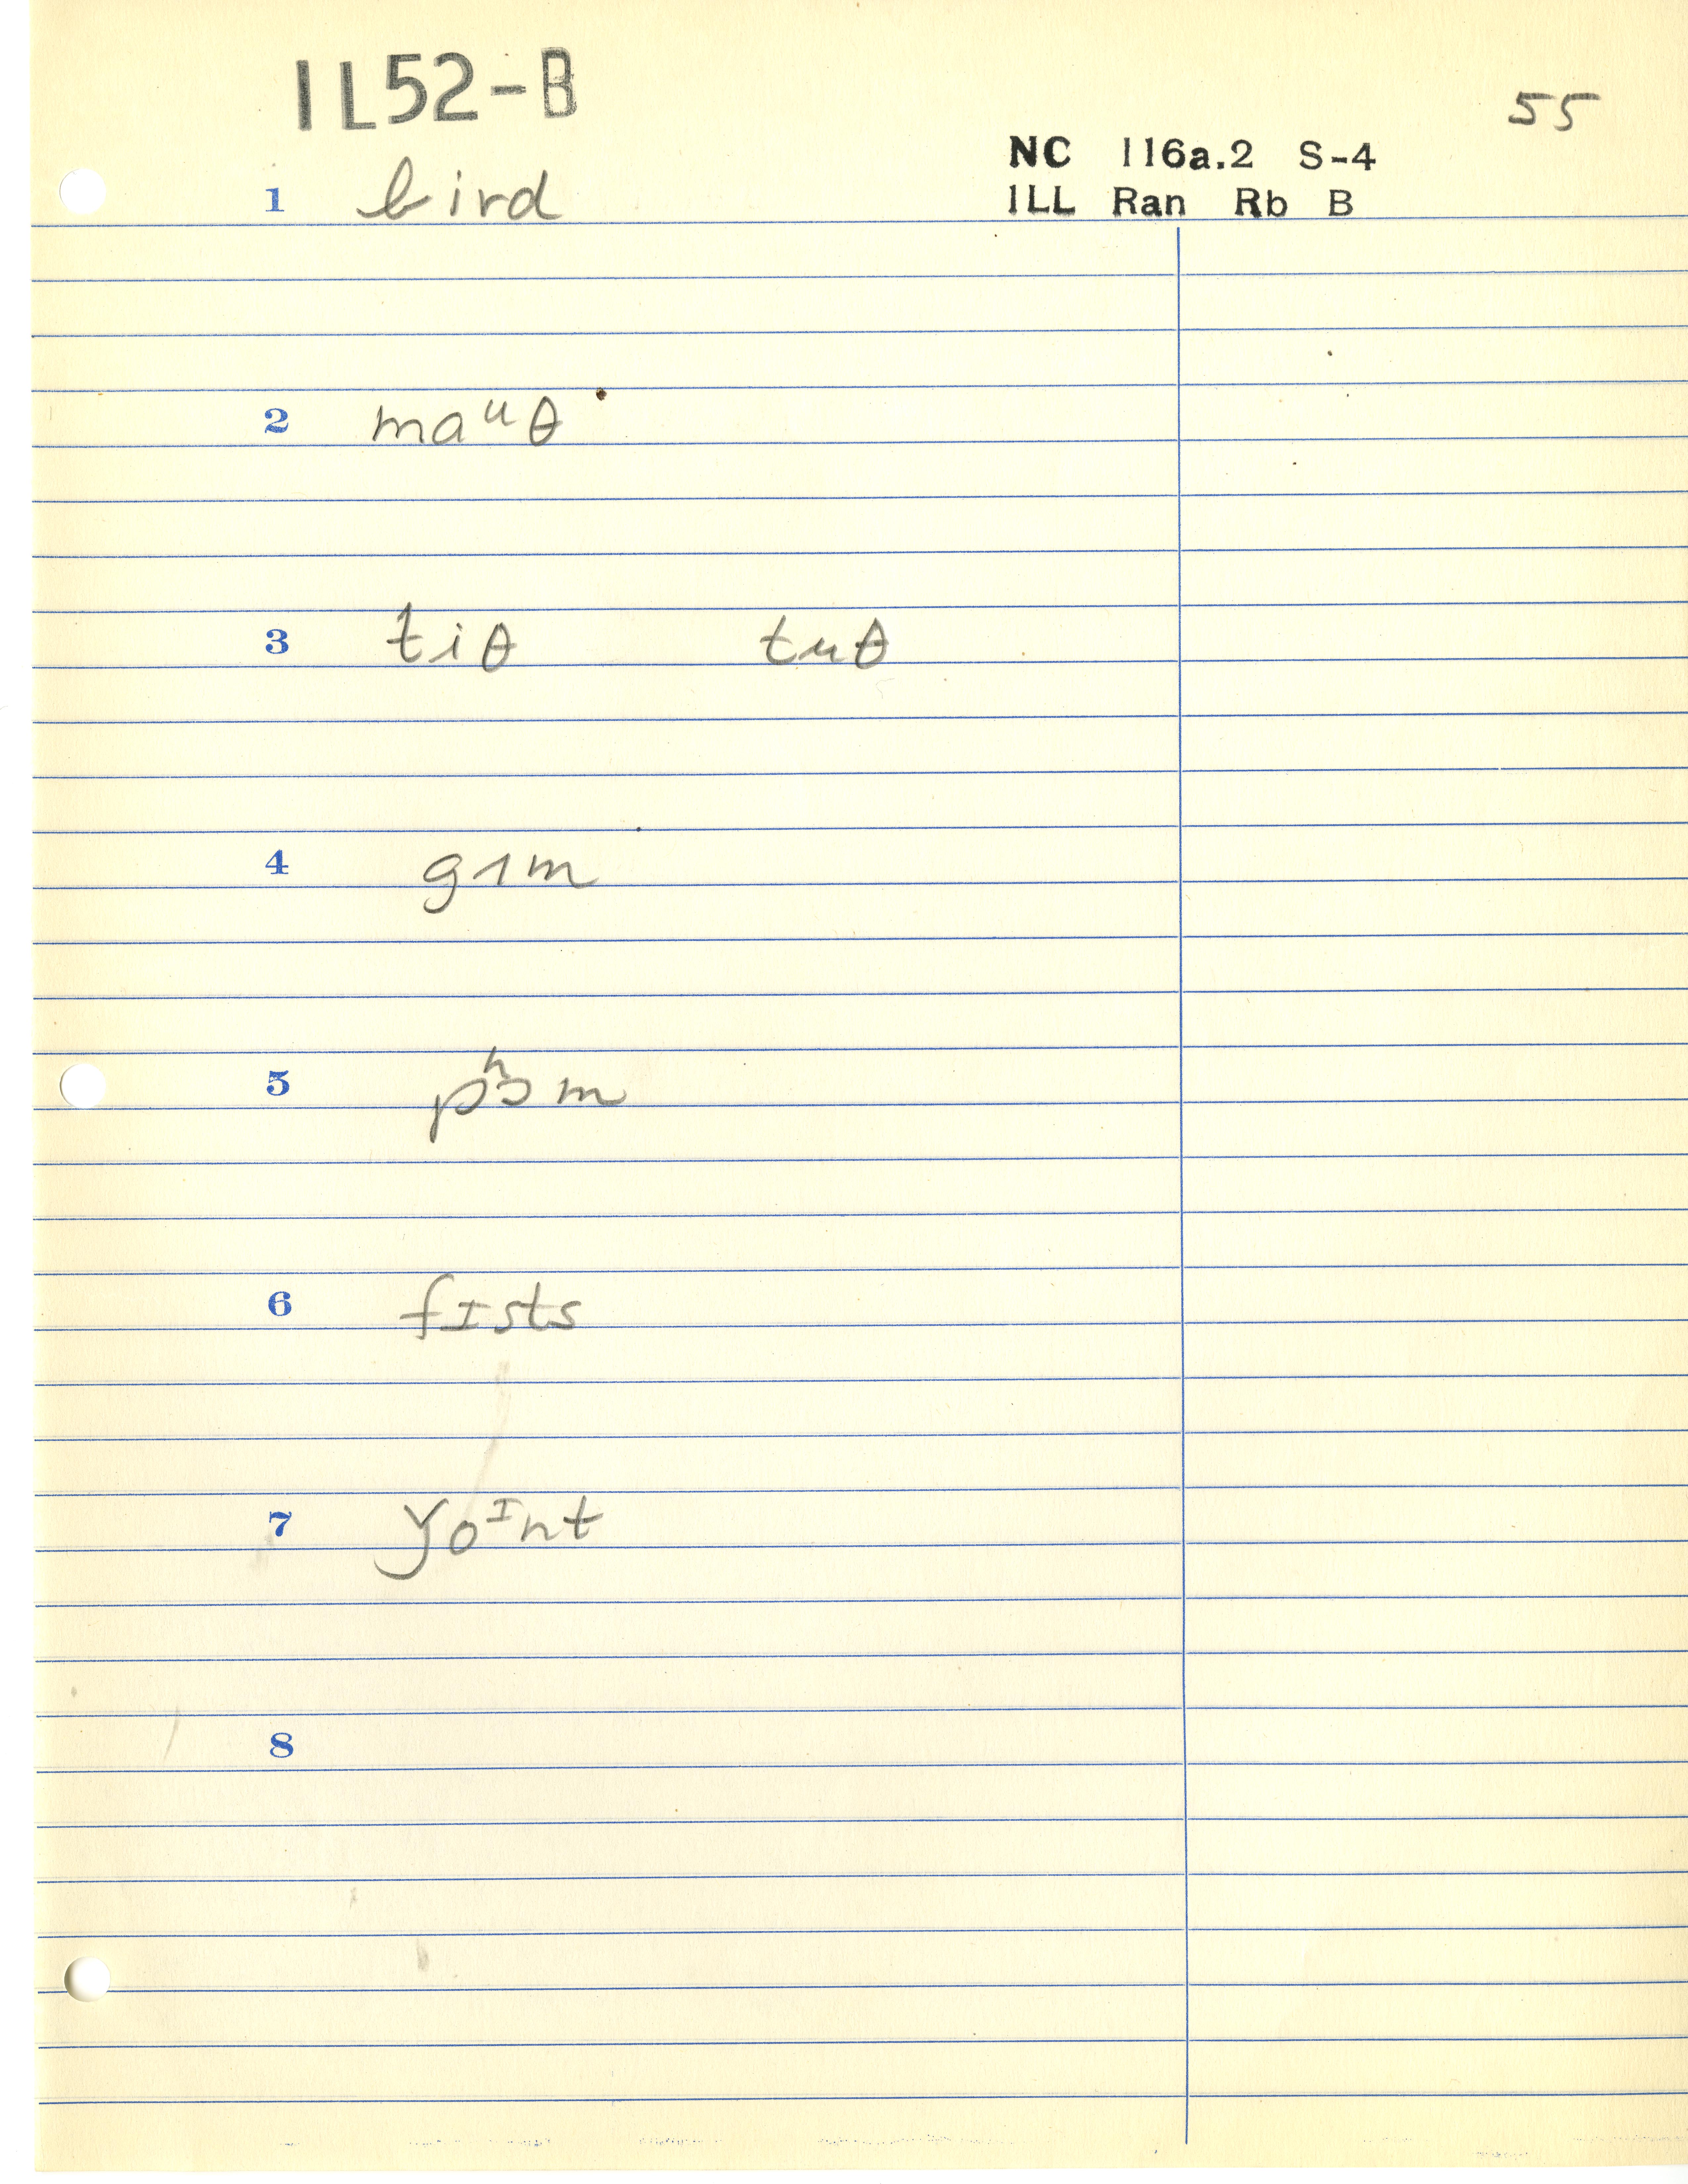 1L52-B
55
NC 116a.2 S-4
1 bird
ILL Ran Rb B
2 maᶸθ
3 tiθ tuθ
4 gɿm
5 pʰɔm
6 fɪsts
7 yoᶦnt
8